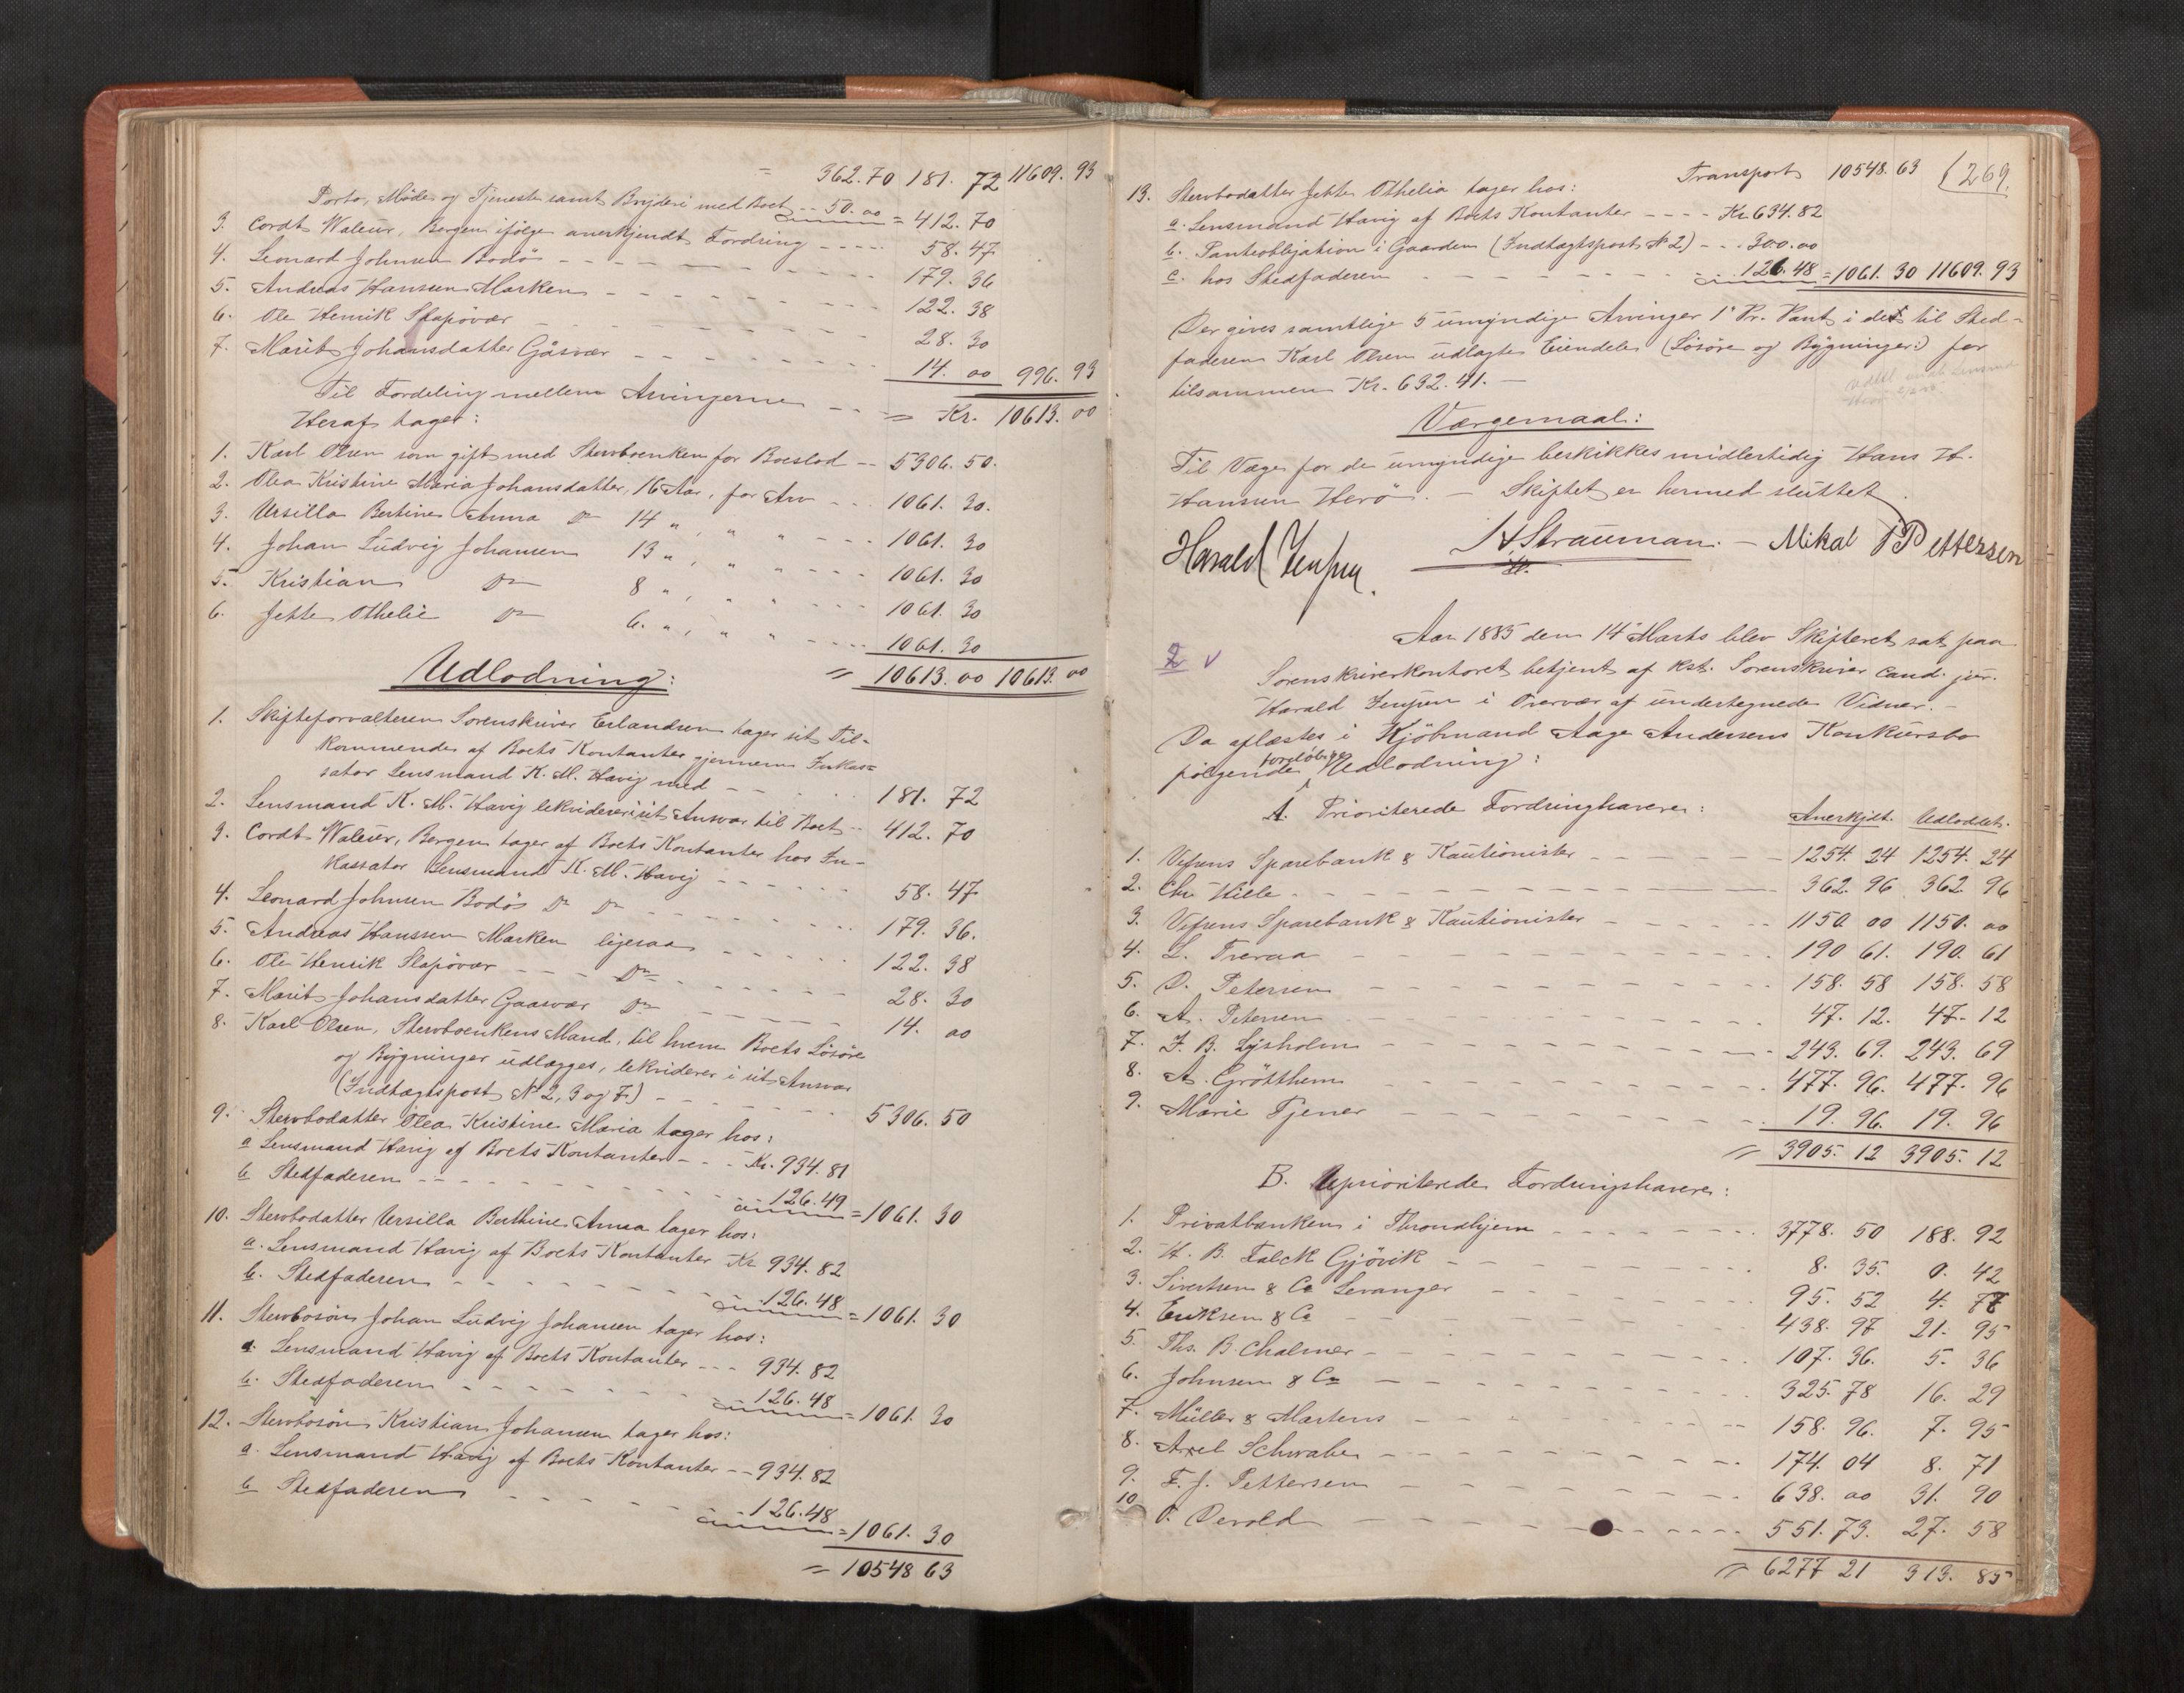 = 362.70 181. 72 11609. 93
Porto, Møde og Tjeneste samt Bryderi med Boet -- 50.00 = 412. 70
3. Cordt Waleur, Bergen ifølge anerkjendt Fordring ---- 58. 47
4. Leonard Johnsen Bodø - - - - 179. 36
5. Andreas Hanssen Marken - - - - 122. 38
6. Ole Henrik Slapøvær - - - - 28. 30
7. Marit Johansdatter Gåsvær - - - - 14. 00 996. 93
Til Fordeling mellem Arvingerne - - = Kr. 10613. 00
Heraf tager:
1. Karl Olsen som gift med Stervboenken for Boeslod -- 5306. 50.
2. Olea Kristine Maria Johansdatter, 16 Aar, for Arv - - 1061. 30.
3. Ursilla Bertine Anna Do 14 " , " " - - - 1061. 30
4. Johan Ludvig Johansen 13 " , " " - - - 1061. 30
5. Kristian Do 8 " , " " - - - 1061. 30
6. Jette Othelie Do 6. " , " " - - - 1061. 30
= 10613. 00 10613. 00
Udlodning:
1. Skifteforvalteren Sorenskriver Erlandsen tager sit Til-
kommende af Boets Kontanter gjennem Inkas-
sator Lensmand K. M. Havig med - - 181. 72
2. Lensmand K. M. Havig lekviderer i sit Ansvar til Boet -- 412. 70
3. Cordt Waleur, Bergen tager af Boets Kontanter hos In-
kassator Lensmand K. M. Havig - - - - 58. 47
4. Leonard Johnsen Bodøs Do Do - - - - 179. 36.
5. Andreas Hanssen Marken ligesaa - - - - 122. 38
6. Ole Henrik Slapøvær - - - Do - - - - 28. 30
7. Marit Johansdatter Gaasvær Do - - - - 14. 00
8. Karl Olsen, Stervboenkens Mand, til hvem Boets Løsøre
og Bygninger udlægges, lekviderer i sit Ansvar
(Indtægtspost No 2, 3 og 7.) - - - - 5306. 50
9. Stervbodatter Olea Kristine Maria tager hos:
a Lensmand Havig af Boets Kontanter - - - Kr. 934. 81
b Stedfaderen - - - - 126. 49 = 1061. 30
10. Stervbodatter Ursilla Bertine Anna tager hos:
a. Lensmand Havig af Boets Kontanter Kr. 934. 82
b. Stedfaderen - - - - 126. 48 = 1061. 30
11. Stervbosøn Johan Ludvig Johansen tager hos:
a. Lensmand Havig af Boets Kontanter --- 934. 82
b. Stedfaderen - - - - 126. 48 = 1061. 30
12. Stervbosøn Kristian Johansen tager hos:
a. Lensmand Havig af Boets Kontanter -- 934. 82
b Stedfaderen - - - - 126. 48 = 1061. 30
= 10548 63
Transport 10548. 63 (269.
13. Stervbodatter Jette Othelia tager hos:
a. Lensmand Havig af Boets Kontanter ---- Kr 634. 82
b. Panteobligation i Gaarden (Indtægtspost No 2) - - - 300.00
c. hos Stedfaderen - - - - 126. 48 = 1061. 30 11609. 93
Der gives samtlige 5 umyndige Arvinger 1ste Pr. Pant i det til Sted-
faderen Karl Olsen udlagte Eiendele (Løsøre og Bygninger) for
tilsammen Kr. 632. 41. -
Værgemaal:
Til Værge for de umyndige beskikkes midlertidig Hans H.
Hansen Herø. - Skiftet er hermed sluttet.
Harald Jensen. H. Strauman. - Mikal P Pettersen
2 v
Aar 1885 den 14de Marts blev Skifteret sat paa
Sorenskriverkontoret betjent af kst. Sorenskriver cand. jur.
Harald Jensen i Overvær af undertegnede Vidner. -
Da aflæstes i Kjöbmand Aage Andersens Konkursbo
følgende foreløbige Udlodning:
A. Prioriterede Fordringhavere: Anerkjdt. Udloddet.
1. Vefsens Sparebank & Kautionister - - - 1254. 24 1254. 24
2. Chr Hiele - - - 362. 96 362 96
3. Vefsens Sparebank & Kautionister - - - 1150 00 1150. 00
4. L. Treraa - - - 190 61. 190. 61
5. O. Petersen - - - 158. 58 158. 58
6. A. Petersen - - - 47. 12. 47. 12
7. I. B. Lysholm - - - 243. 69. 243. 69
8. A. Grötthem - - - 477. 96. 477. 96
9. Marie Tjener - - - 19. 96. 19. 96
= 3905. 12 3905. 12
B. Uprioriterede Fordringshavere:
1. Privatbanken i Throndhjem - - - 3778. 50 188. 92
2. H. B. Falck Gjövik - - - 8. 35. 0. 42
3. Sivertsen & Co Levanger - - - 95. 52 4. 77
4. Eriksen & Co - - - 438. 97 21. 95
5. Ths. B. Chalmer - - - 107. 36. 5. 36
6. Johnsen & Co - - - 325. 78 16. 29
7. Müller & Martens - - - 158. 96. 7. 95
8. Axel Schwabe - - - 174. 04 8. 71
9. F. J. Pettersen - - - 638. 00 31. 90
10 O. Devold - - - 551. 73. 27. 58
= 6277 21 313. 85